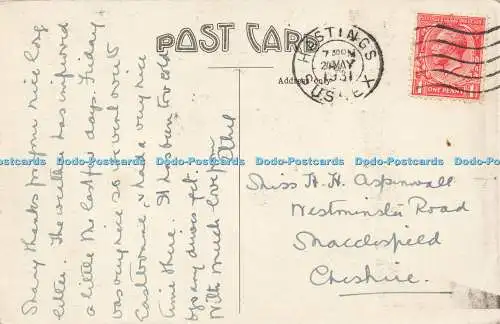 POST CARD
Address only
HASTINGS
730PM
20 MAY
1931
SUSSEX
ONE PENNY
Many thanks for your nice long
letter. The weather has improved
a little the last few days. Friday
was very nice so we went over to
Eastbourne, & had a very nice
time there. It has been too cold
for any drives yet.
With much love from
Ethel
Miss H. H. Aspinwall
Westminster Road
Macclesfield
Cheshire.
Dodo-Postcards Dodo-Postcards Dodo-Postcards Dodo-Postcards Dodo-Postcards Dodo-Postcards